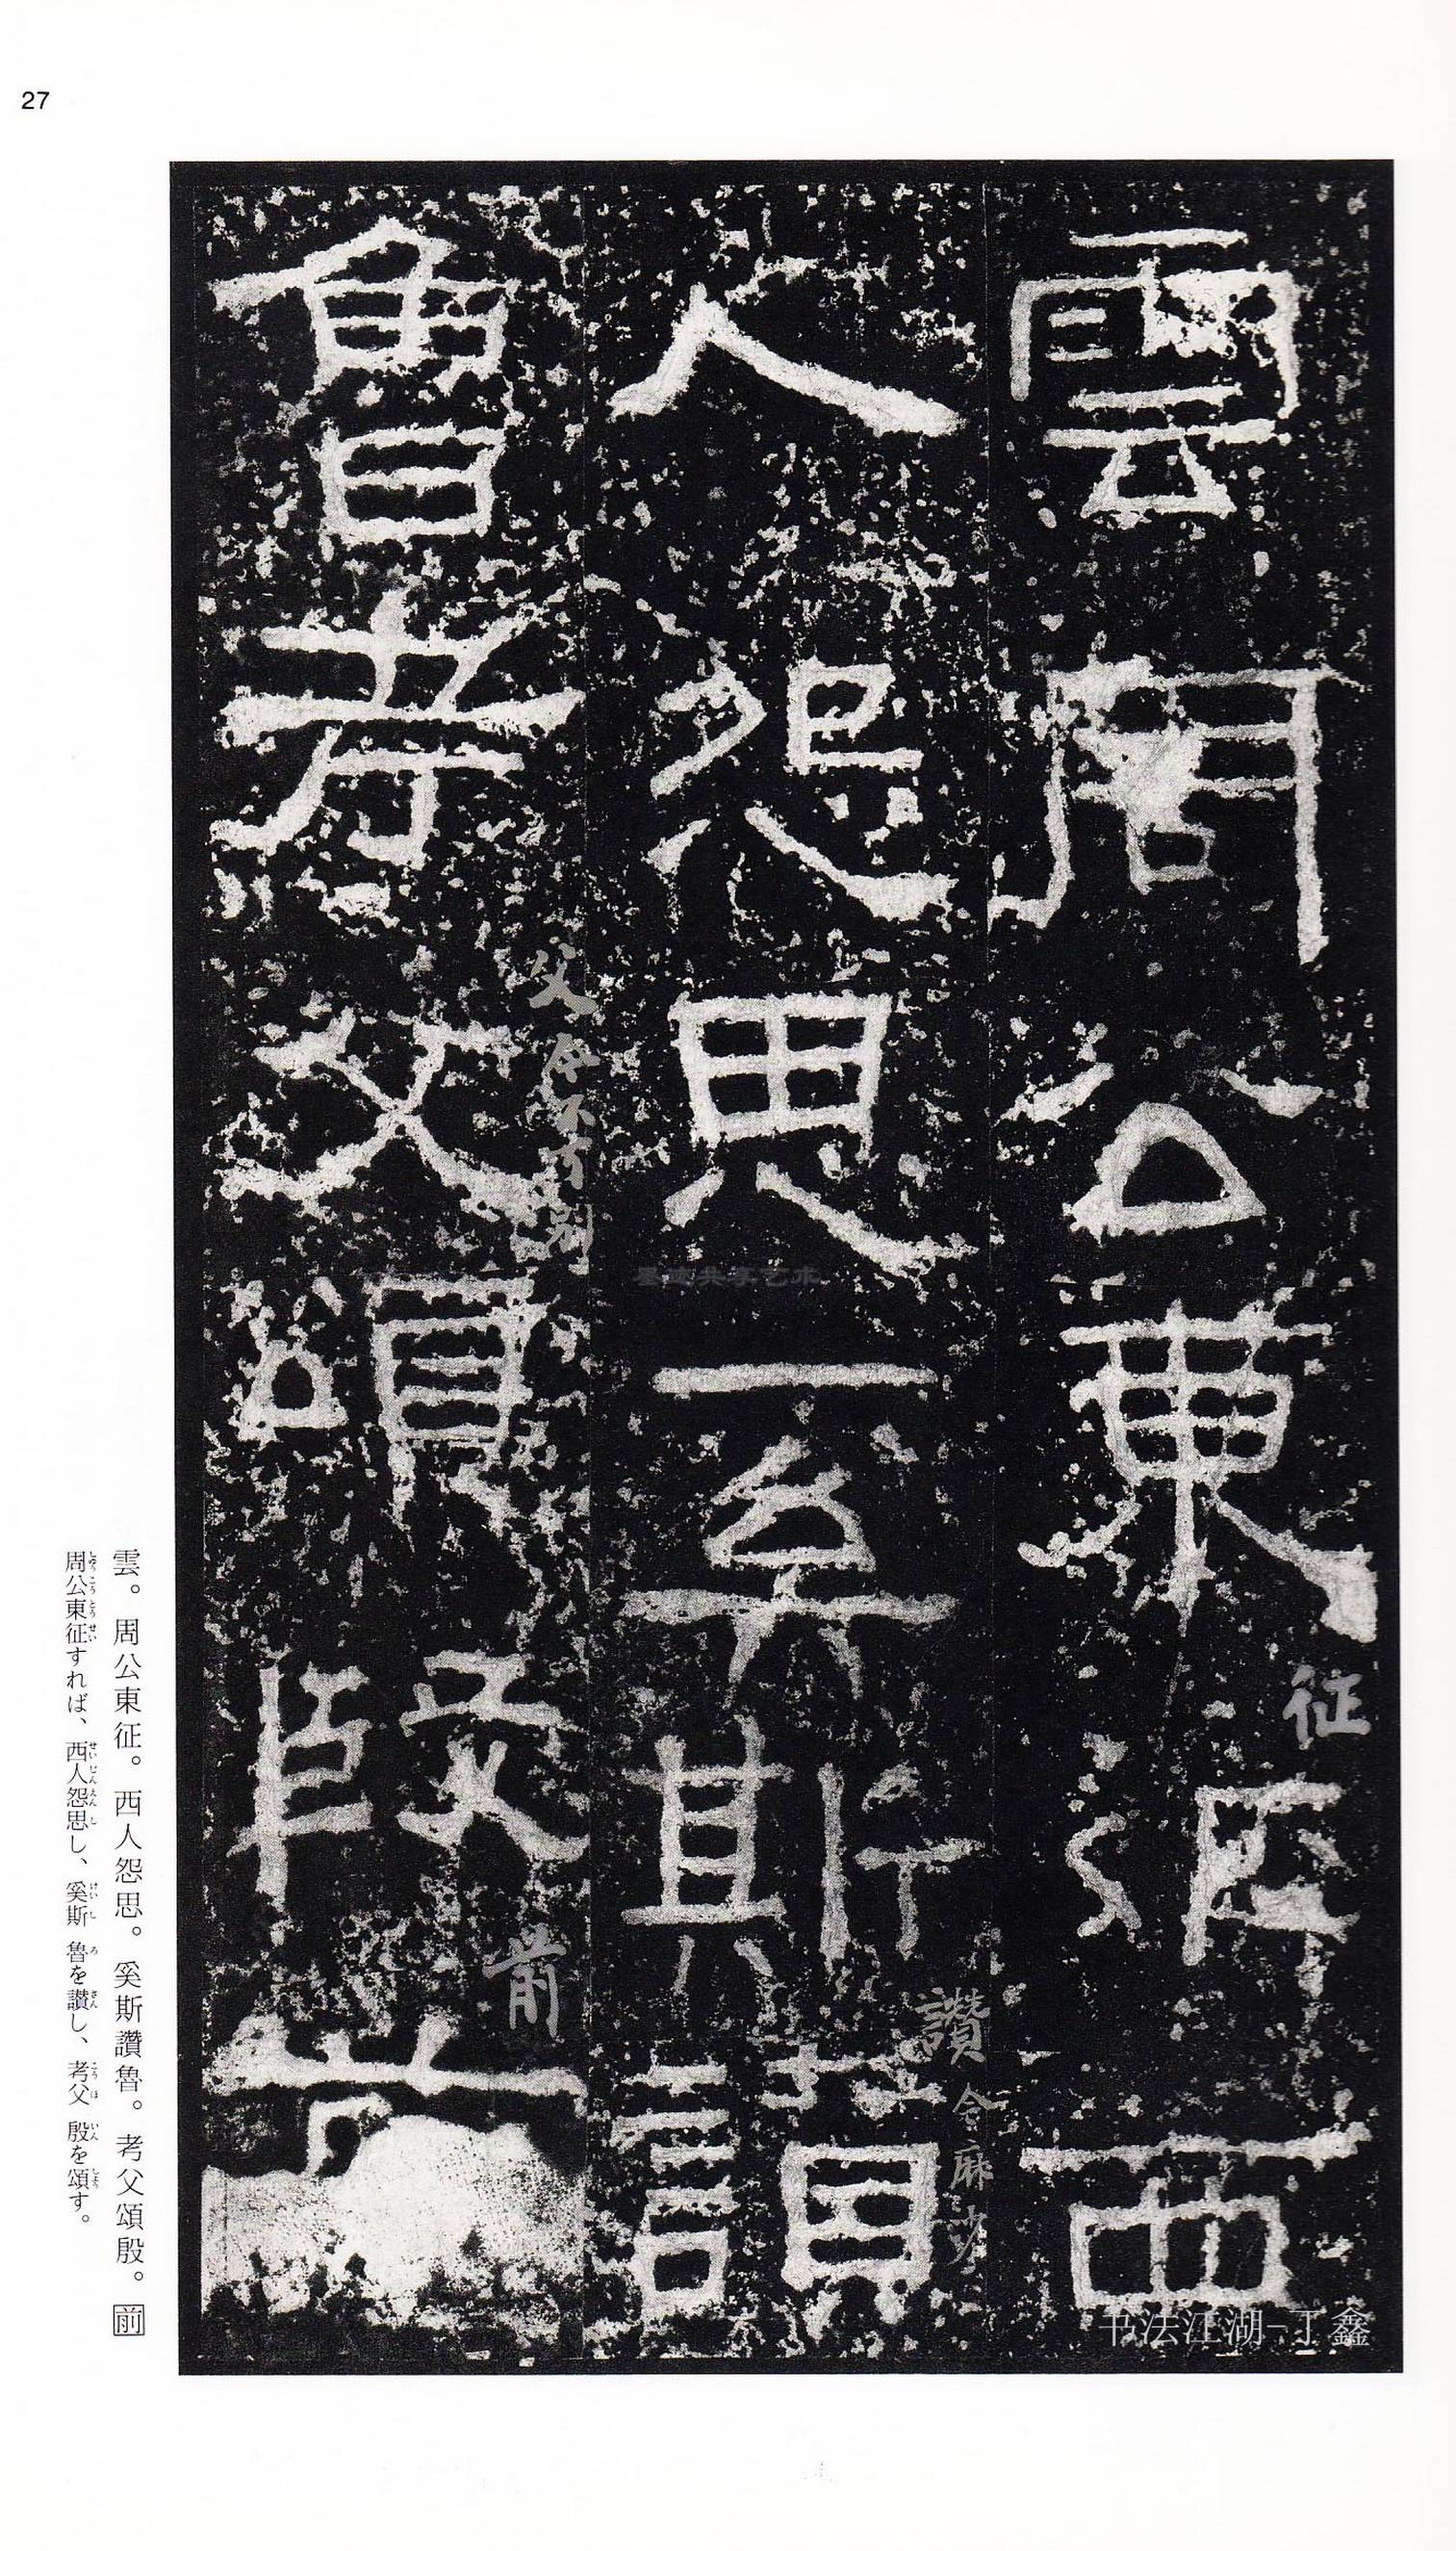 27
雲周公東征西
人怨思奚斯讚
魯考父頌殷前
征
讚
父
前
雲。周公東征。西人怨思。奚斯讚魯。考父頌殷。前
周公東征すれば、西人怨思し、奚斯 魯を讃し、考父 殷を頌す。
书法江湖-丁鑫